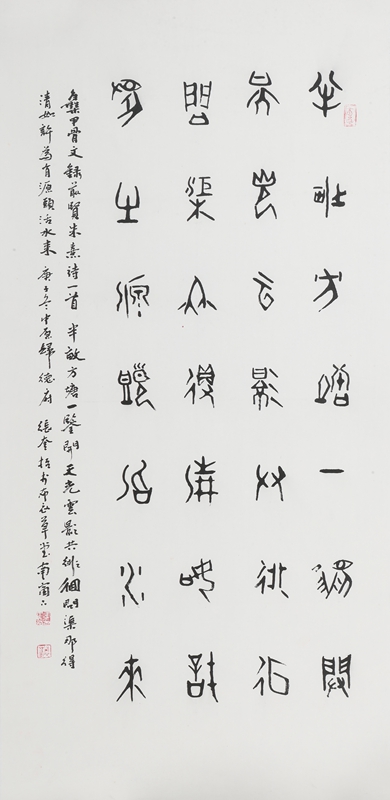 半畝方塘一鑒開
天光雲影共徘徊
問渠那得清如許
為有源頭活水來
集甲骨文錄前賢朱熹詩一首 半畝方塘一鑒開天光雲影共徘徊問渠那得
清如許為有源頭活水來 庚子冬中原歸德府 張奎 草堂南窗下